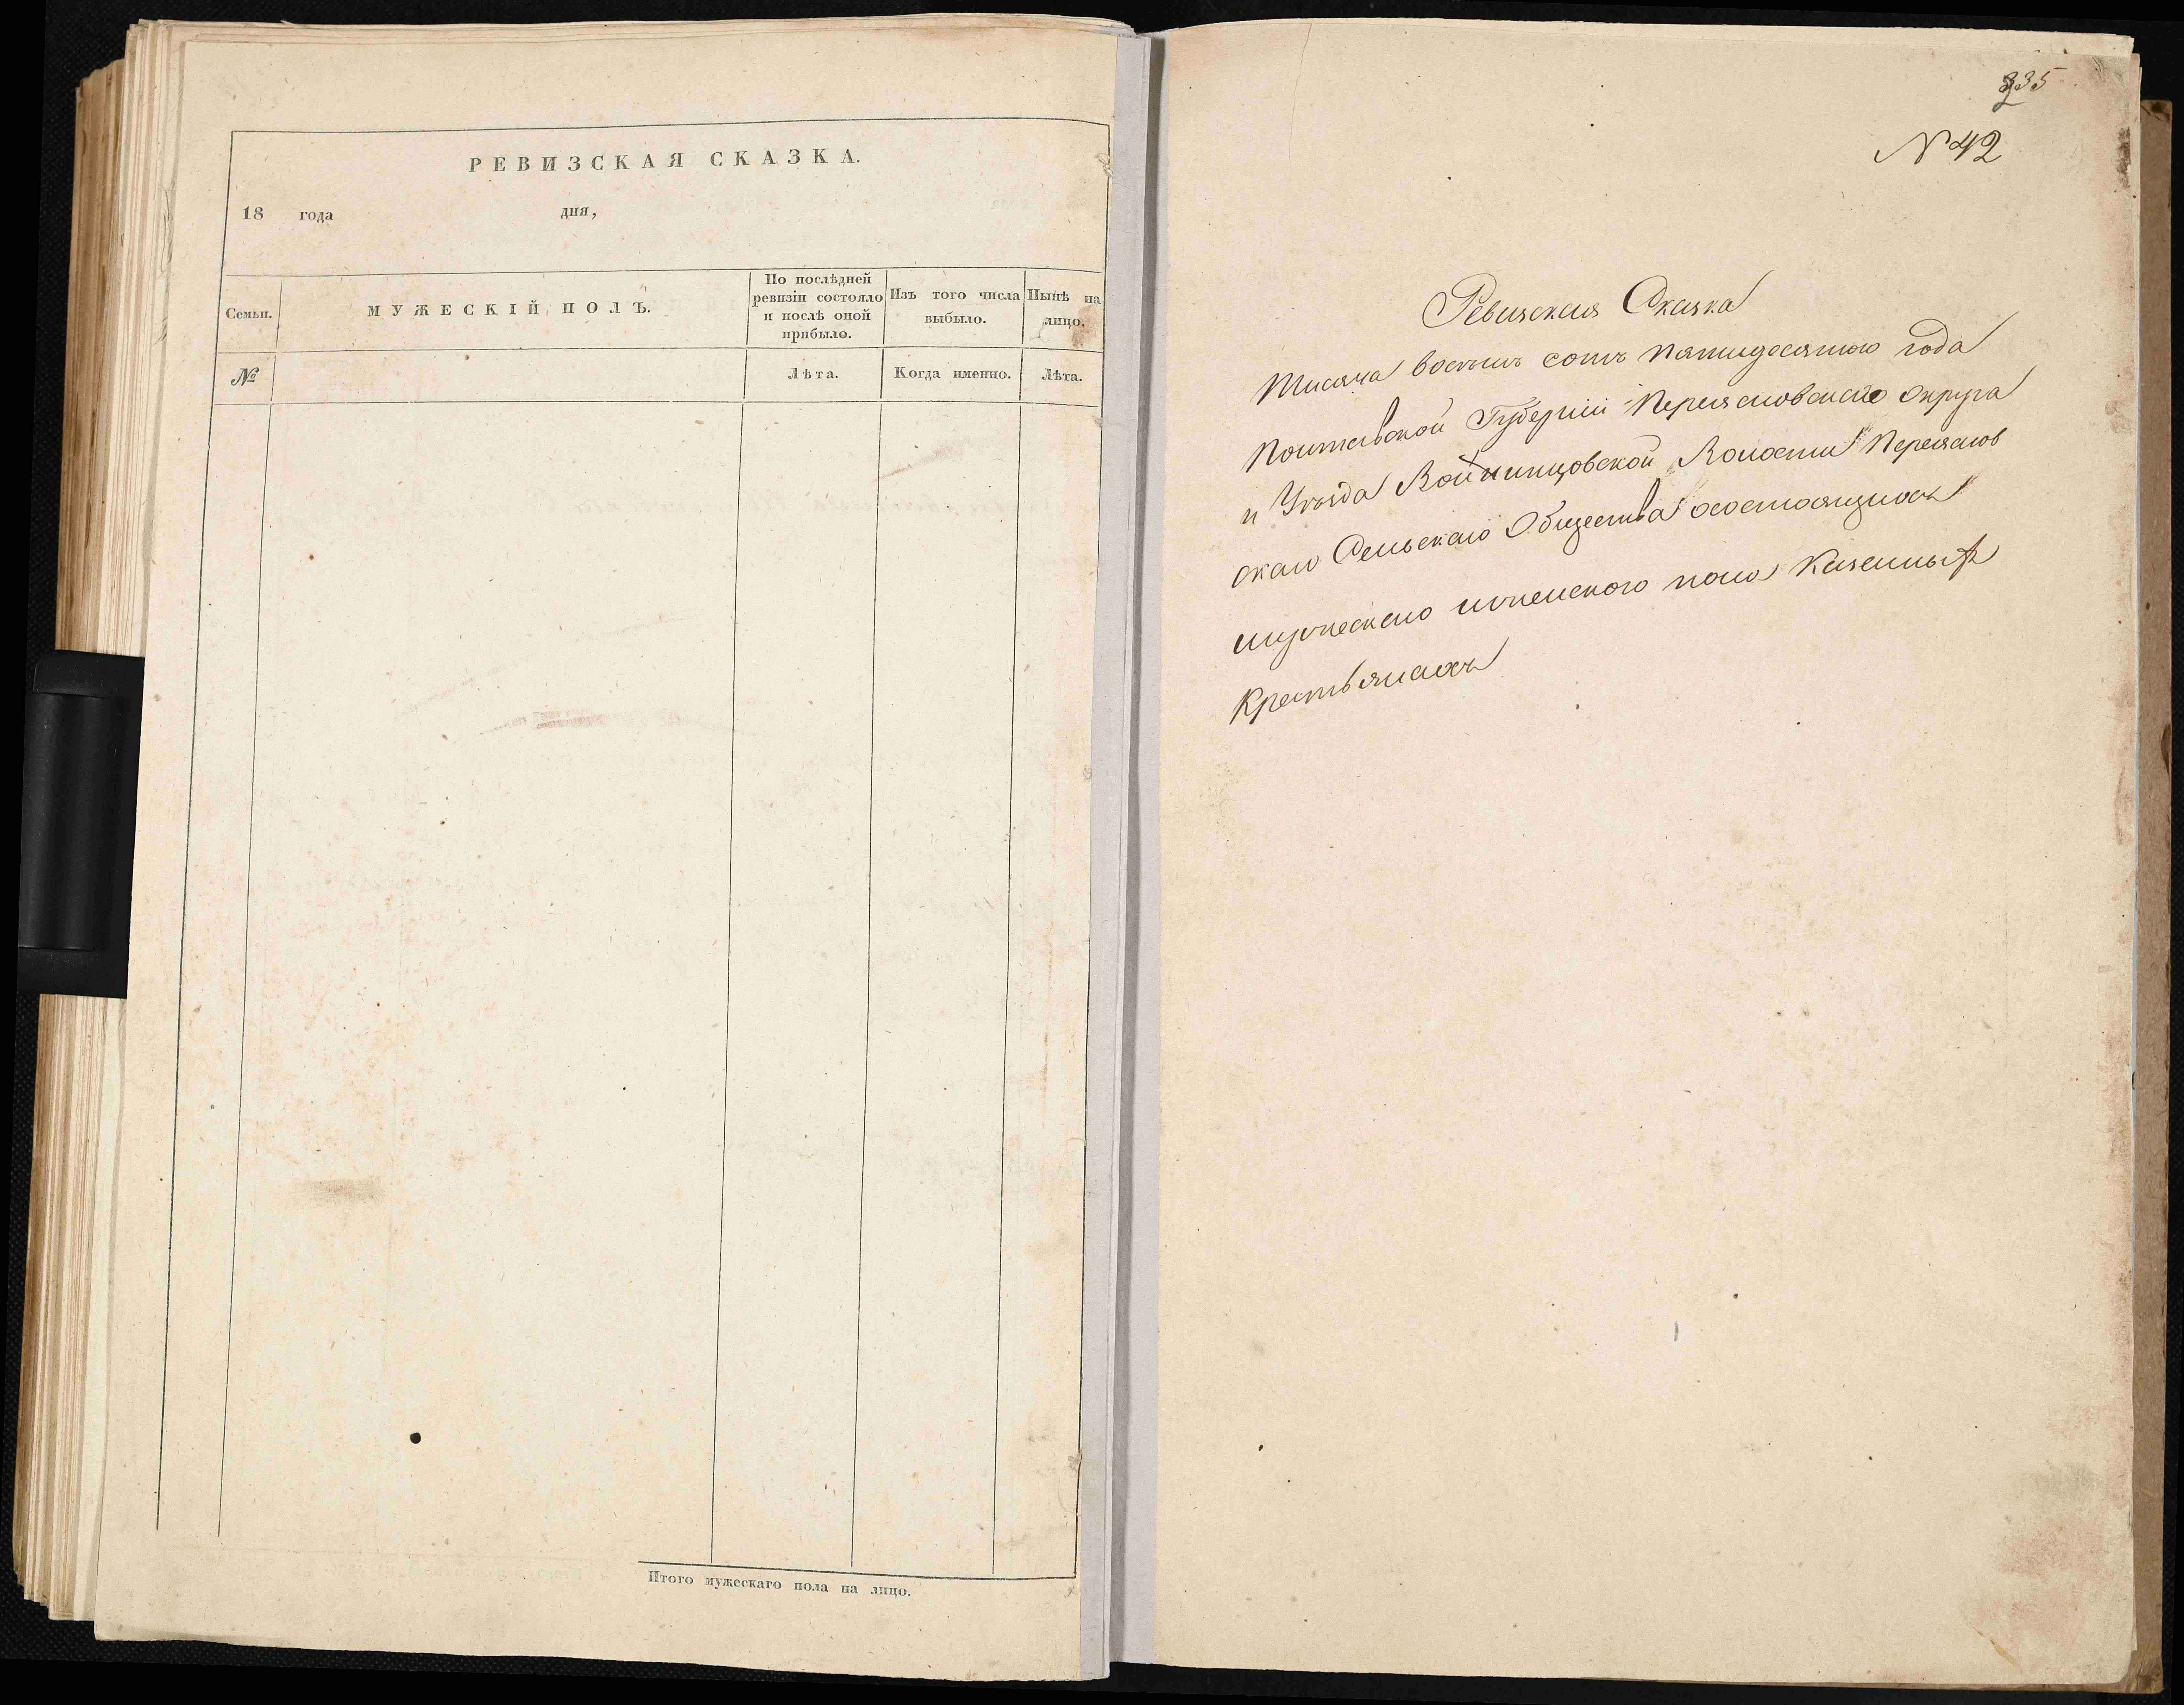 РЕВИЗСКАЯ СКАЗКА.
18 года дня,
Семьи.
МУЖЕСКІЙ ПОЛЪ.
По послѣдней
ревизіи состояло
и послѣ оной
прибыло.
Изъ того числа
выбыло.
Нынѣ на
лицо.
№
Лѣта.
Когда именно.
Лѣта.
Итого мужескаго пола на лицо.
335
№ 42
Ревизская Сказка
Тисяча восемь сотъ пятидесятого года
Полтавской Губерніи Переясловскаго Округа
и Уѣзда Войнинцовской Волости Переяслов
скаго Сельскаго Общества осостоящихъ
мужескаго иженского пола Казенныхъ
Крестьянахъ